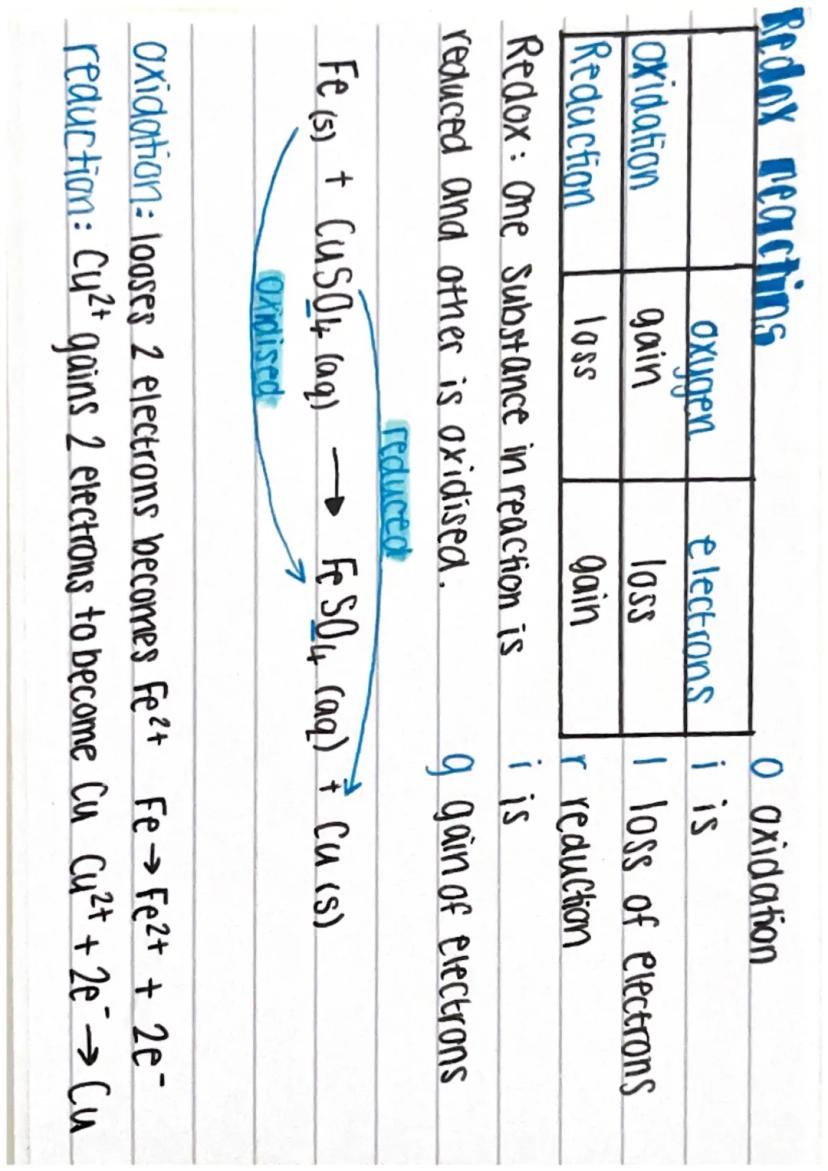 Redox reactins
oxygen electrons
oxidation gain loss
Reduction loss gain
o oxidation
i is
l loss of electrons
r reduction
i is
g gain of electrons
Redox: one substance in reaction is
reduced and other is oxidised.
reduced
Fe (s) + CuSO4 (aq) → FeSO4 (aq) + Cu (s)
oxidised
oxidation: looses 2 electrons becomes Fe²⁺ Fe → Fe²⁺ + 2e⁻
reduction: Cu²⁺ gains 2 electrons to become Cu Cu²⁺ + 2e⁻ → Cu